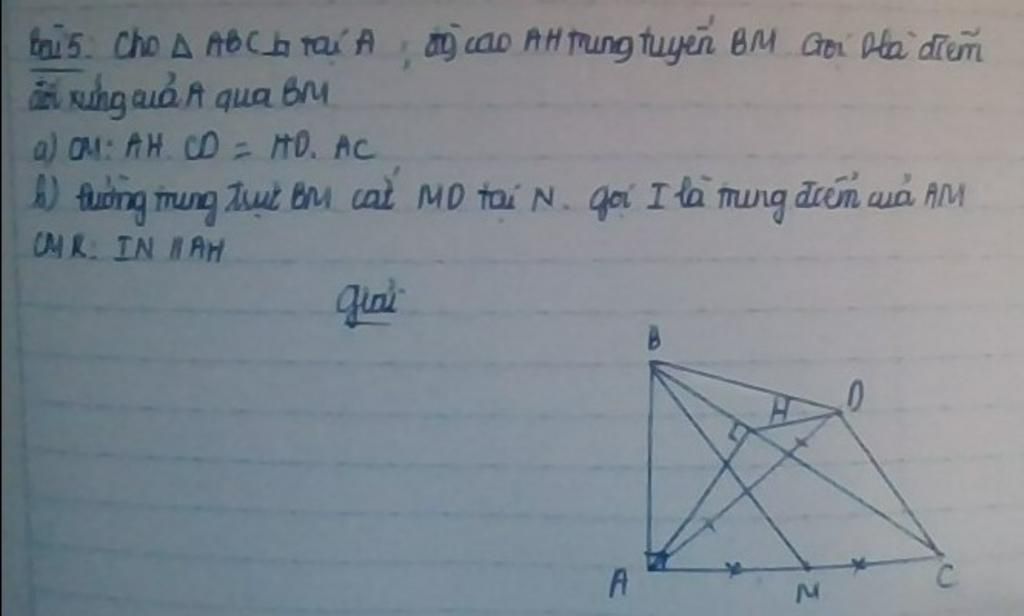 Bài 5: Cho Δ ABC ⊥ tại A ; đg cao AH trung tuyến BM Gọi D là điểm
đối xứng của A qua BM
a) CM: AH. CD = HD. AC
b) Đường trung trực BM cắt MD tại N. gọi I là trung điểm của AM
CMR: IN // AH
Giải
B
H
D
A
M
C